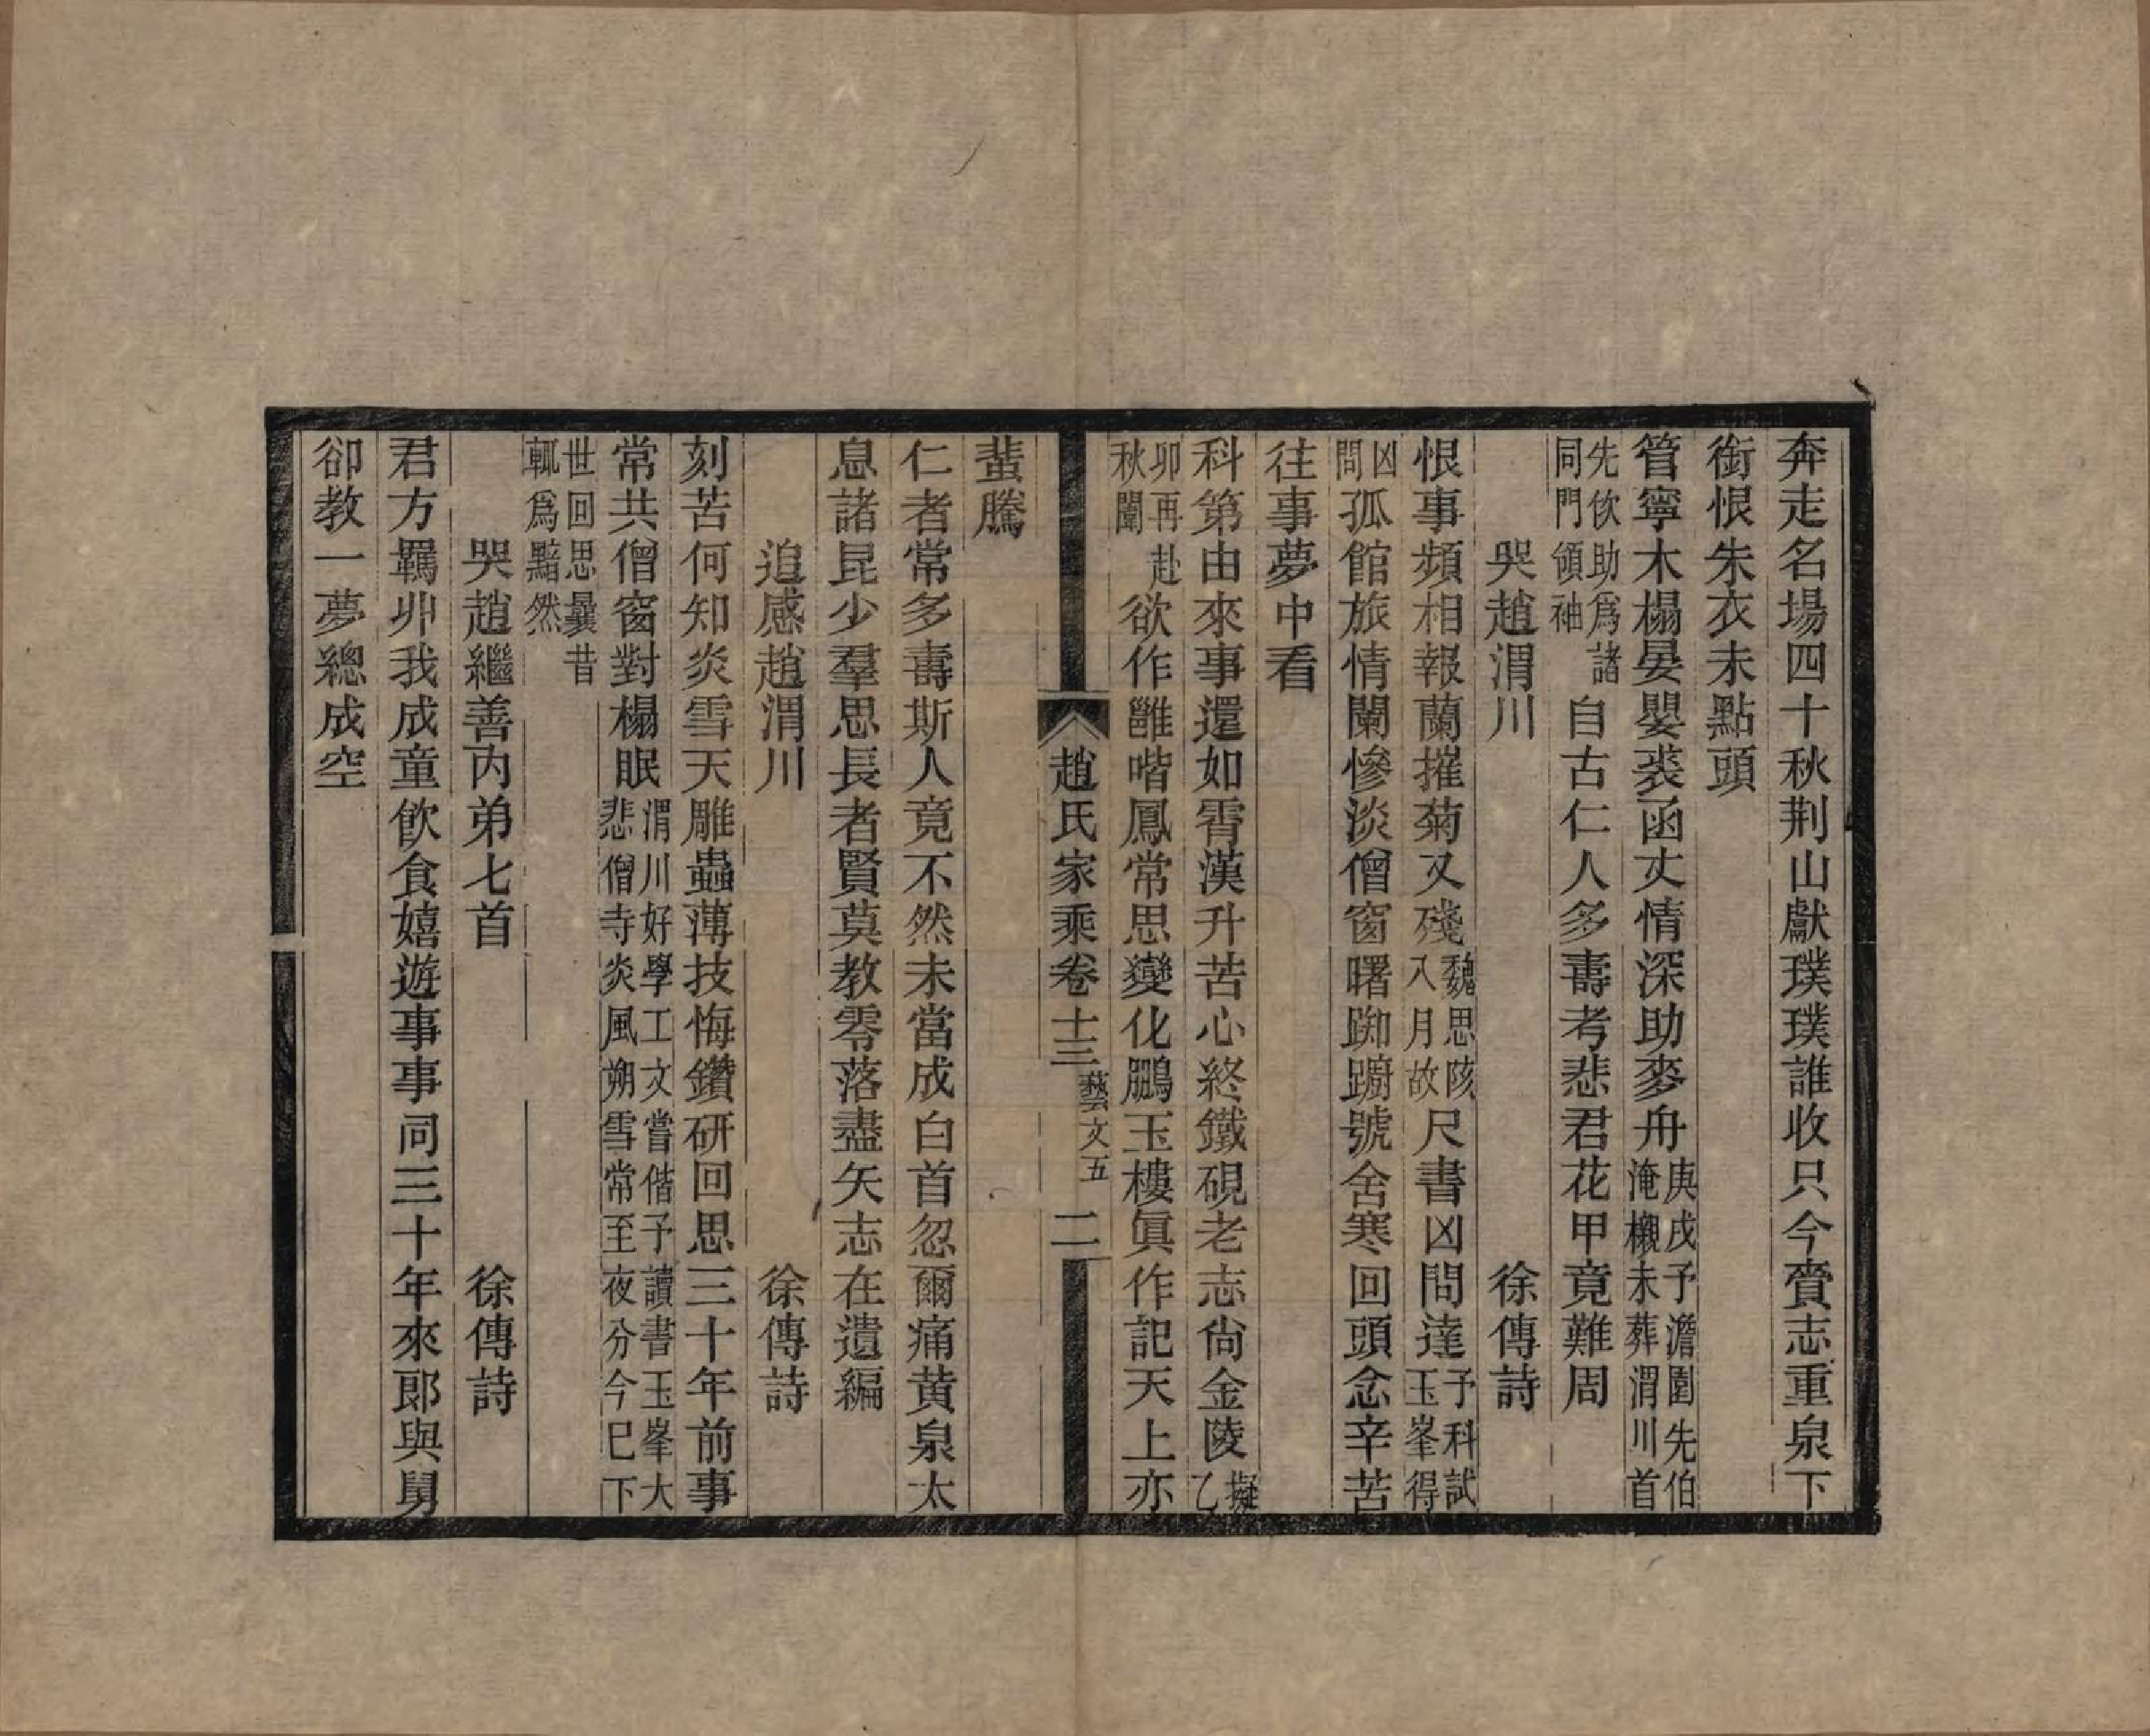 奔走名場四十秋荆山獻璞璞誰收只今賫志重泉下
銜恨朱衣未點頭
管寧木榻晏嬰裘函丈情深助麥舟庚戌予澹園先伯淹櫬未葬渭川首
先佽助爲諸同門領袖自古仁人多壽考悲君花甲竟難周
哭趙渭川　徐傳詩
恨事頻相報蘭摧菊又殘魏思陔入月故尺書凶問達予科試玉峯得
凶問孤館旅情闌慘淡僧窗曙踟躕號舍寒回頭念辛苦
往事夢中看
科第由來事還如霄漢升苦心終鐵硯老志尙金陵擬乙
卯再赴秋闈欲作雝喈鳳常思變化鵬玉樓眞作記天上亦
趙氏家乘卷十三　藝文五　二
蜚騰
仁者常多壽斯人竟不然未當成白首忽爾痛黄泉太
息諸昆少羣思長者賢莫教零落盡矢志在遺編
追感趙渭川　徐傳詩
刻苦何知炎雪天雕蟲薄技悔鑽研回思三十年前事
常共僧窗對榻眠渭川好學工文嘗偕予讀書玉峯大悲僧寺炎風朔雪常至夜分今已下
世回思曩昔輒爲黯然
哭趙繼善内弟七首　徐傳詩
君方羈丱我成童飮食嬉遊事事同三十年來郎與舅
卻教一夢總成空